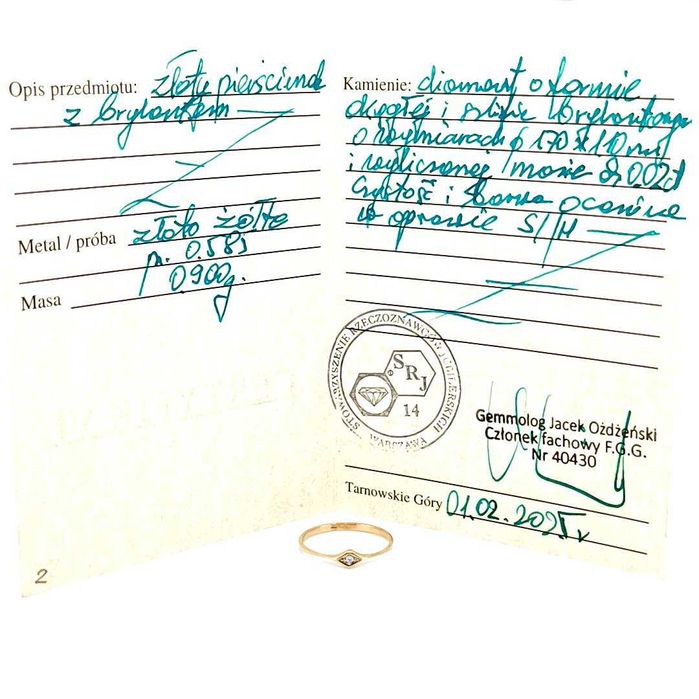 Opis przedmiotu: złoty pierścionek
z brylantem
Metal / próba złoto żółte
p. 0.585
Masa 0.900g.
2
Kamienie: diament o formie
okrągłej i szlifie brylantowym
o wymiarach ϕ 1.70 x 1.10 mm
i wyliczonej masie 0.02ct
Czystość i barwa ocenione
w oprawie SI/H
STOWARZYSZENIE RZECZOZNAWCÓW JUBILERSKICH
WARSZAWA
SRJ
14
Gemmolog Jacek Ożdżeński
Członek fachowy F.G.G.
Nr 40430
Tarnowskie Góry 01.02.2025 r